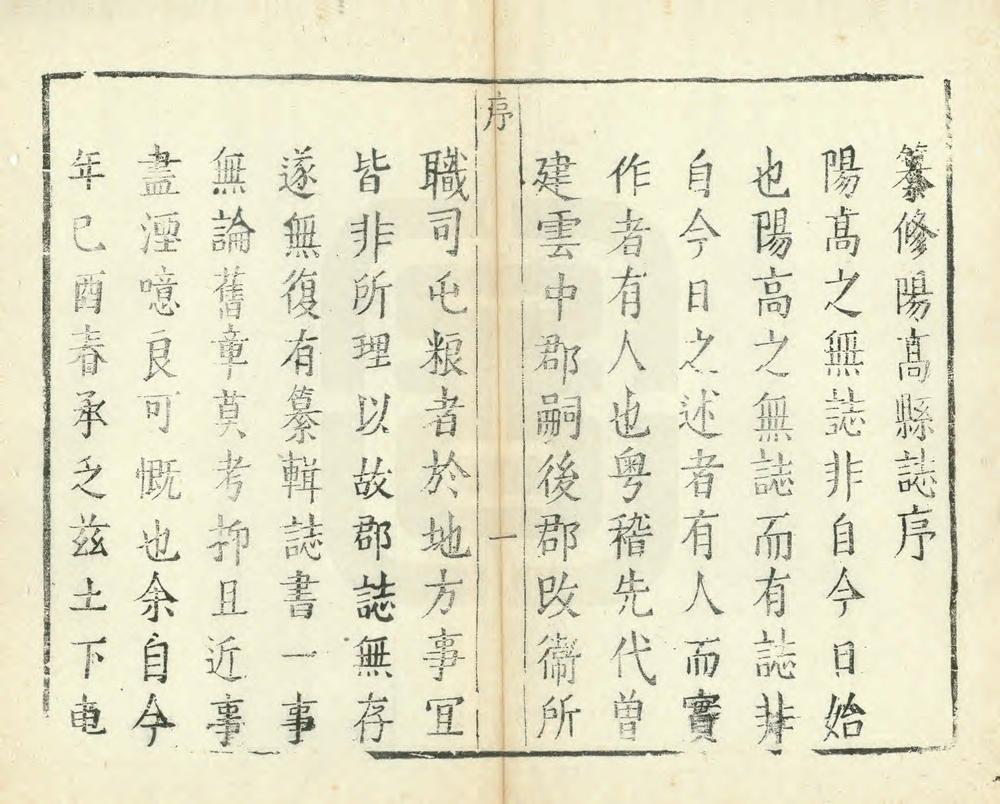 纂修陽髙縣誌序
陽髙之無誌非自今日始
也陽高之無誌而有誌非
自今日之述者有人而實
作者有人也粤稽先代曽
建雲中郡嗣後郡改衞所
序
一
職司屯粮者於地方事冝
皆非所理以故郡誌無存
遂無復有纂輯誌書一事
無論舊章莫考抑且近事
盡湮噫良可慨也余自今
年巳酉春承乏茲土下車